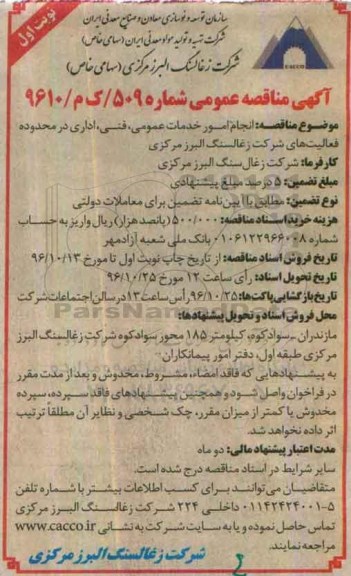 نوبت اول
سازمان توسعه و نوسازی معادن و صنایع معدنی ایران
شرکت تهیه و تولید مواد معدنی ایران (سهامی خاص)
شرکت زغالسنگ البرز مرکزی (سهامی خاص)
CACCO
آگهی مناقصه عمومی شماره ۵۰۹/ک م/۹۶۱۰
موضوع مناقصه: انجام امور خدمات عمومی، فنی، اداری در محدوده
فعالیت‌های شرکت زغالسنگ البرز مرکزی
کارفرما: شرکت زغال سنگ البرز مرکزی
مبلغ تضمین: ۵ درصد مبلغ پیشنهادی
نوع تضمین: مطابق با آیین‌نامه تضمین برای معاملات دولتی
هزینه خرید اسناد مناقصه: ۵۰۰/۰۰۰ (پانصد هزار) ریال واریز به حساب
شماره ۰۱۰۶۱۲۲۹۶۶۰۰۸ بانک ملی شعبه آزادمهر
تاریخ فروش اسناد مناقصه: از تاریخ چاپ نوبت اول تا مورخ ۹۶/۱۰/۱۳
تاریخ تحویل اسناد: رأی ساعت ۱۲ مورخ ۹۶/۱۰/۲۵
تاریخ بازگشایی پاکت‌ها: ۹۶/۱۰/۲۵ رأس ساعت ۱۳ در سالن اجتماعات شرکت
محل فروش اسناد و تحویل پیشنهادها:
مازندران ـ سوادکوه، کیلومتر ۱۸۵ محور سوادکوه شرکت زغالسنگ البرز
مرکزی طبقه اول، دفتر امور پیمانکاران
به پیشنهادهایی که فاقد امضاء، مشروط، مخدوش و بعد از مدت مقرر
در فراخوان واصل شود و همچنین پیشنهادهای فاقد سپرده، سپرده
مخدوش یا کمتر از میزان مقرر، چک شخصی و نظایر آن مطلقاً ترتیب
اثر داده نخواهد شد.
مدت اعتبار پیشنهاد مالی: دو ماه
سایر شرایط در اسناد مناقصه درج شده است.
متقاضیان می‌توانند برای کسب اطلاعات بیشتر با شماره تلفن
۰۱۱۴۲۴۲۴۰۰۱-۵ داخلی ۲۲۴ شرکت زغالسنگ البرز مرکزی
تماس حاصل نموده و یا به سایت شرکت به نشانی www.cacco.ir
مراجعه نمایند.
شرکت زغالسنگ البرز مرکزی